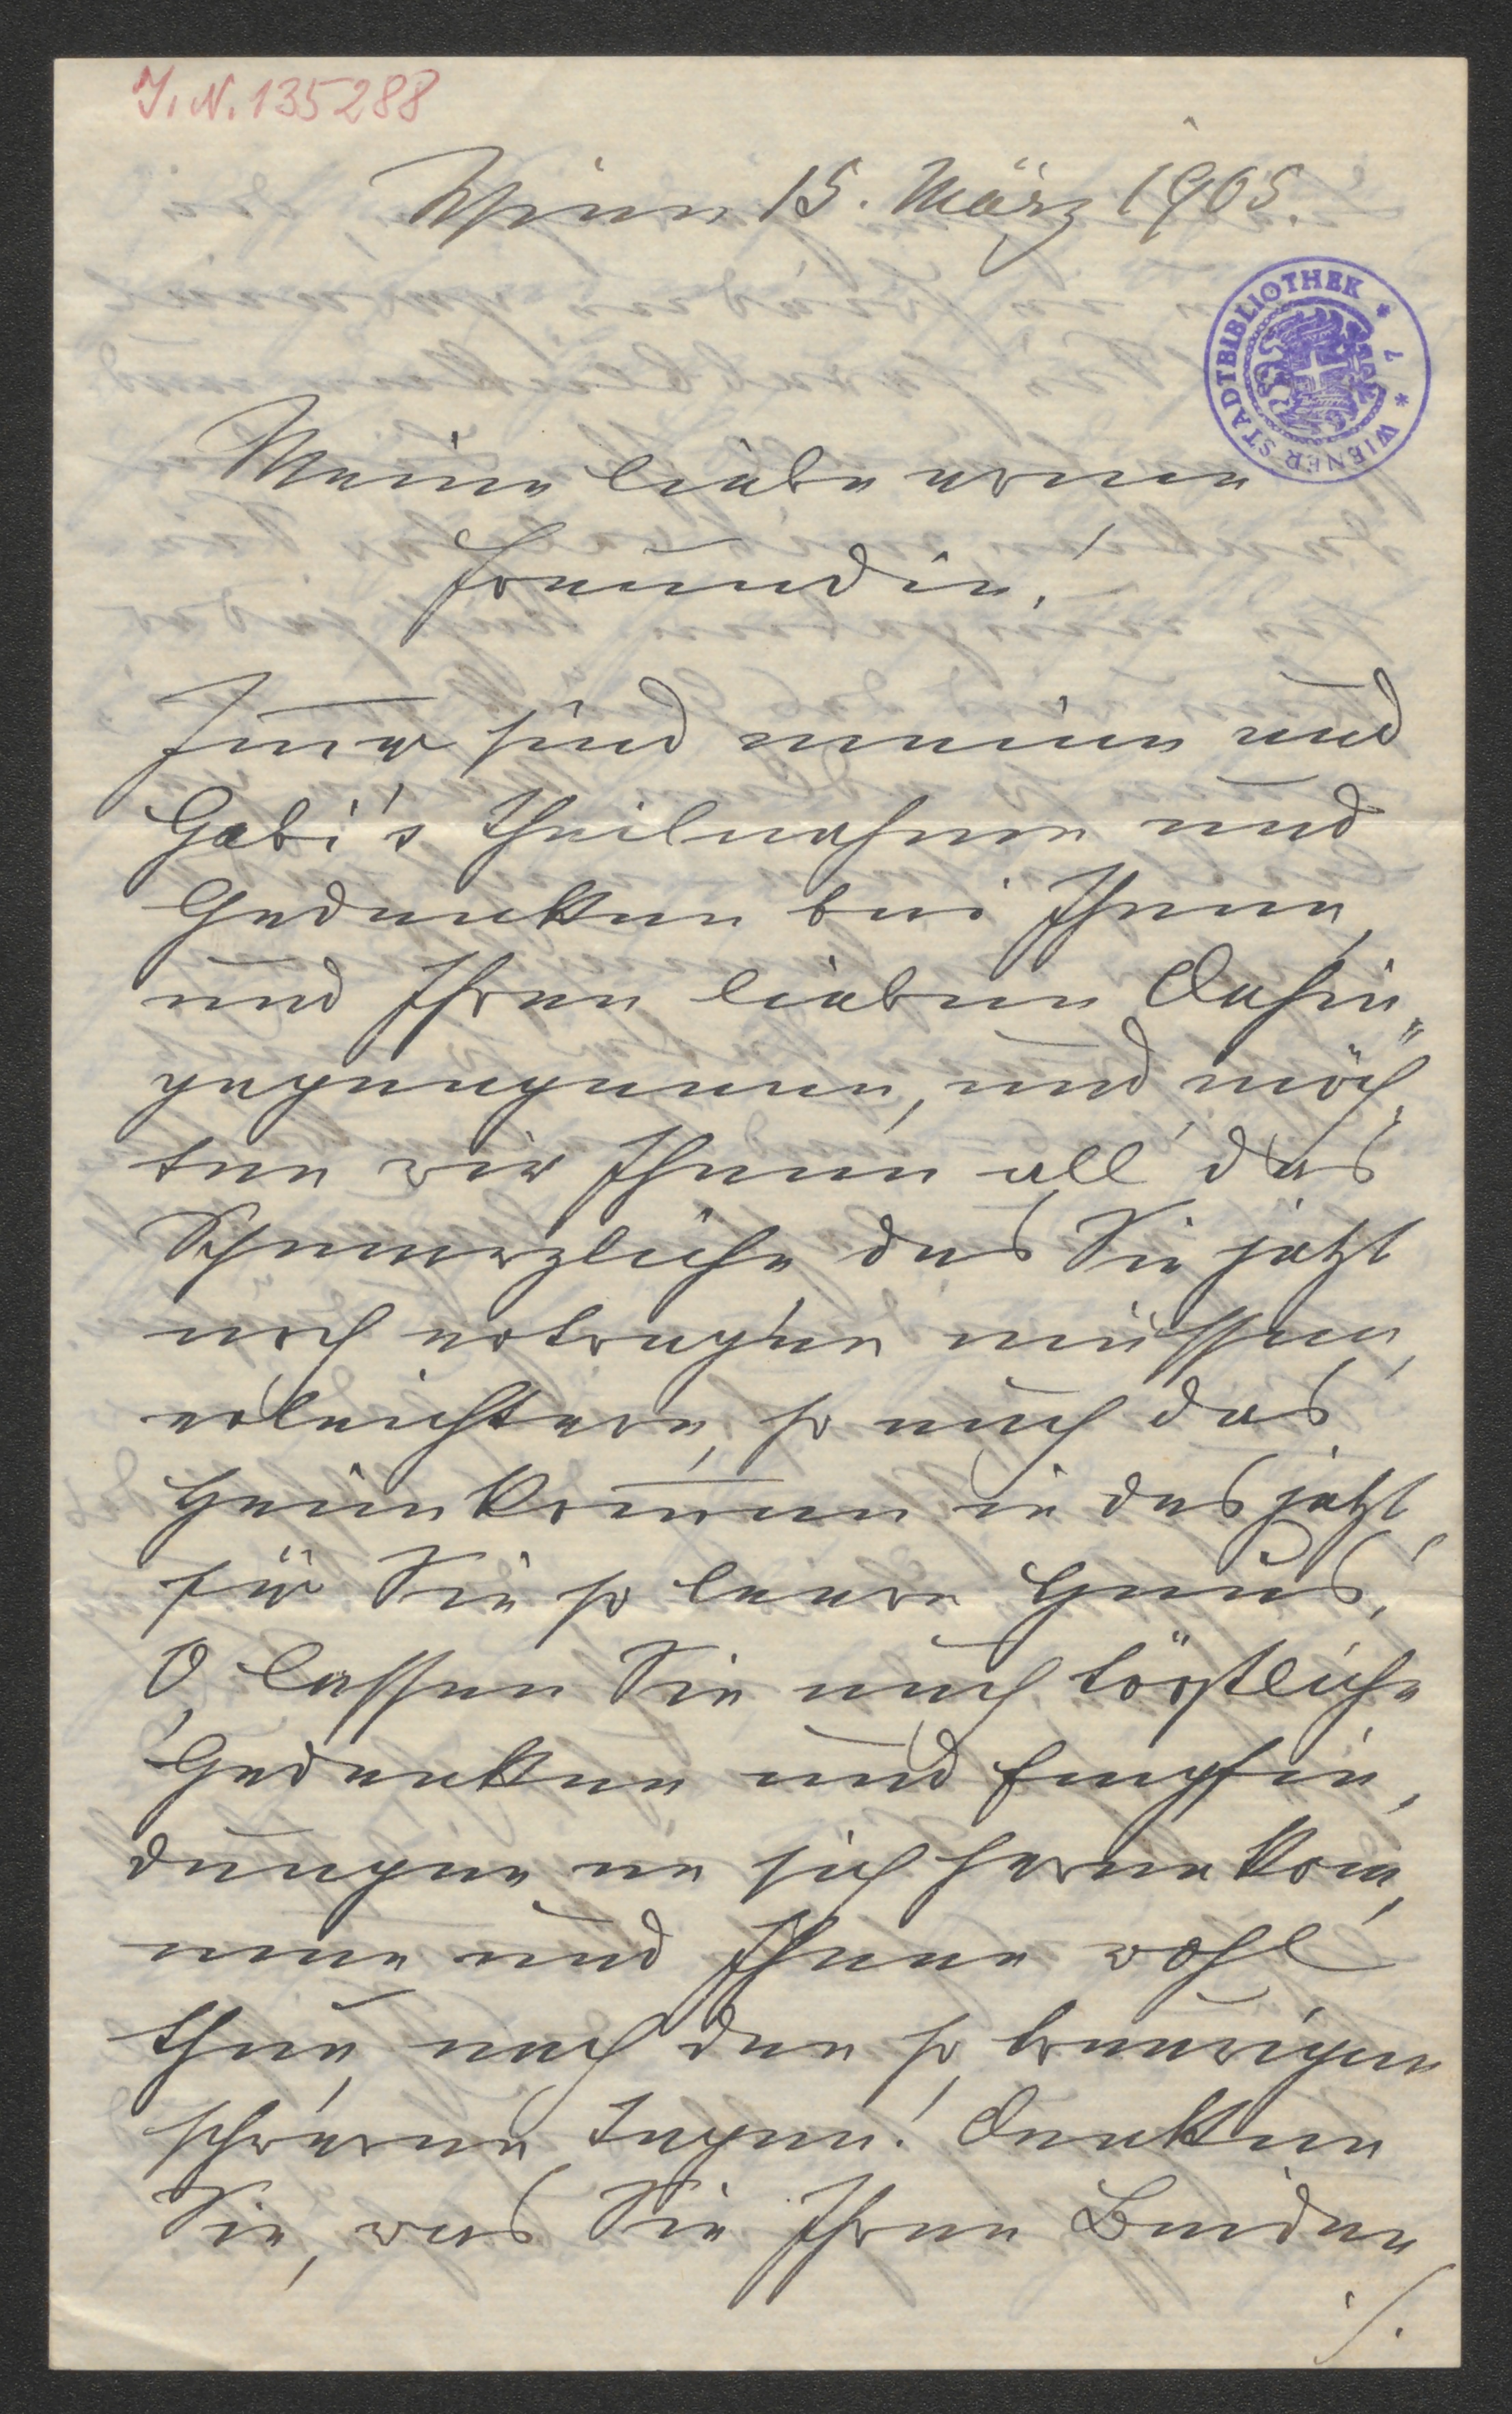 I. N. 135288
Wien 15. März 1905.
WIENER STADTBIBLIOTHEK * 7 *
Meine liebe arme
Freundin!
Immer sind meine und
Gabi's Theilnahme und
Gedanken bei Ihnen,
und Ihren lieben Dahin„
gegangenen, und möch„
ten wir Ihnen all' das
Schmerzliche das Sie jetzt
noch ertragen müssen,
erleichtern, so auch das
Heimkommen in das jetzt
für Sie so leere Haus!
O, lassen Sie auch tröstliche
Gedanken und Empfin„
dungen an sich heran kom„
men und Ihnen wohl
thun, nach den so traurigen
schweren Tagen! Denken
Sie, was Sie Ihren Beiden
./.